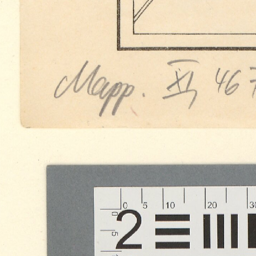 Mapp. XI, 467
0 5 10 20 30
2